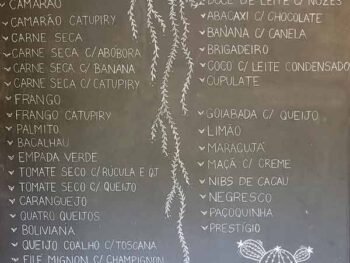 CAMARÃO
CAMARÃO CATUPIRY
CARNE SECA
CARNE SECA C/ABÓBORA
CARNE SECA C/ BANANA
CARNE SECA C/CATUPIRY
FRANGO
FRANGO CATUPIRY
PALMITO
BACALHAU
EMPADA VERDE
TOMATE SECO C/RÚCULA E QJ
TOMATE SECO C/ QUEIJO
CARANGUEJO
QUATRO QUEIJOS
BOLIVIANA
QUEIJO COALHO C/TOSCANA
FILÉ MIGNON C/CHAMPIGNON
DOCE DE LEITE C/ NOZES
ABACAXI C/ CHOCOLATE
BANANA C/ CANELA
BRIGADEIRO
COCO C/ LEITE CONDENSADO
CUPULATE
GOIABADA C/ QUEIJO
LIMÃO
MARACUJÁ
MAÇÃ C/ CREME
NIBS DE CACAU
NEGRESCO
PAÇOQUINHA
PRESTÍGIO